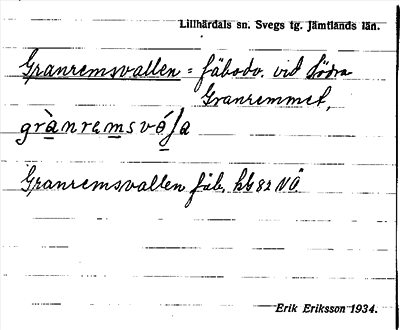 Lillhärdals sn. Svegs tg. Jämtlands län.
Granremsvallen = fäbodv. vid Södra
Granremmet,
grànremsváļa
Granremsvallen fäb, kb 82 NÖ.
Erik Eriksson 1934.